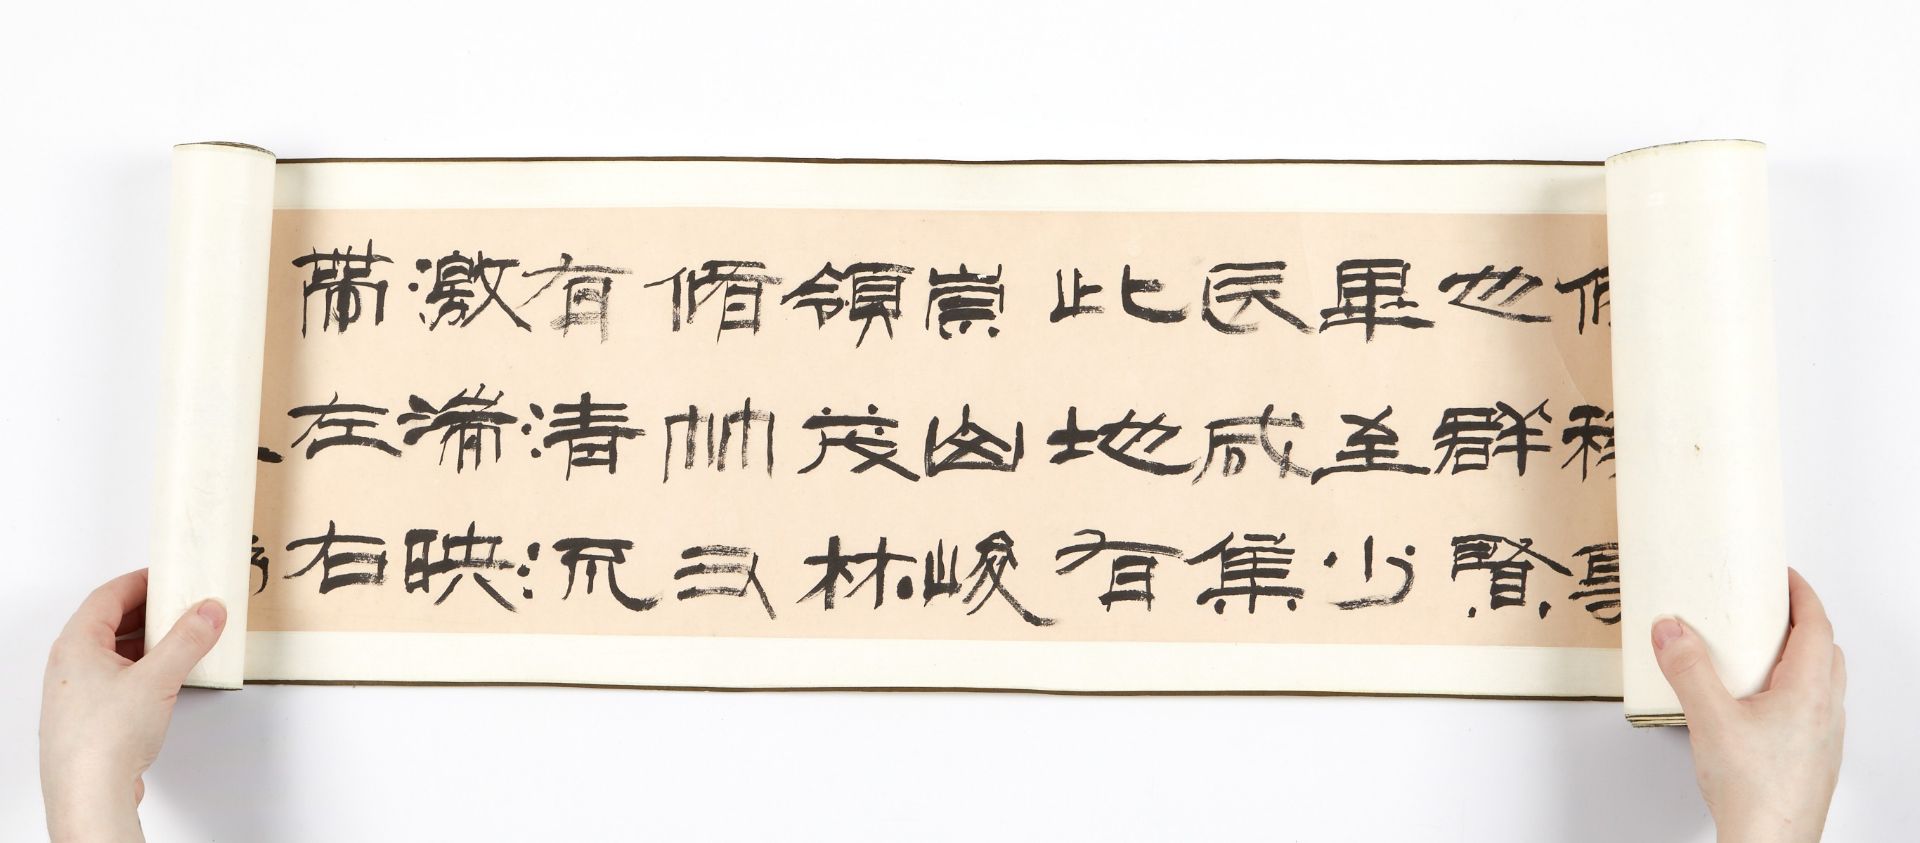 也群賢
畢至少
長咸集
此地有
崇山峻
領茂林
脩竹又
有清流
激湍映
帶左右